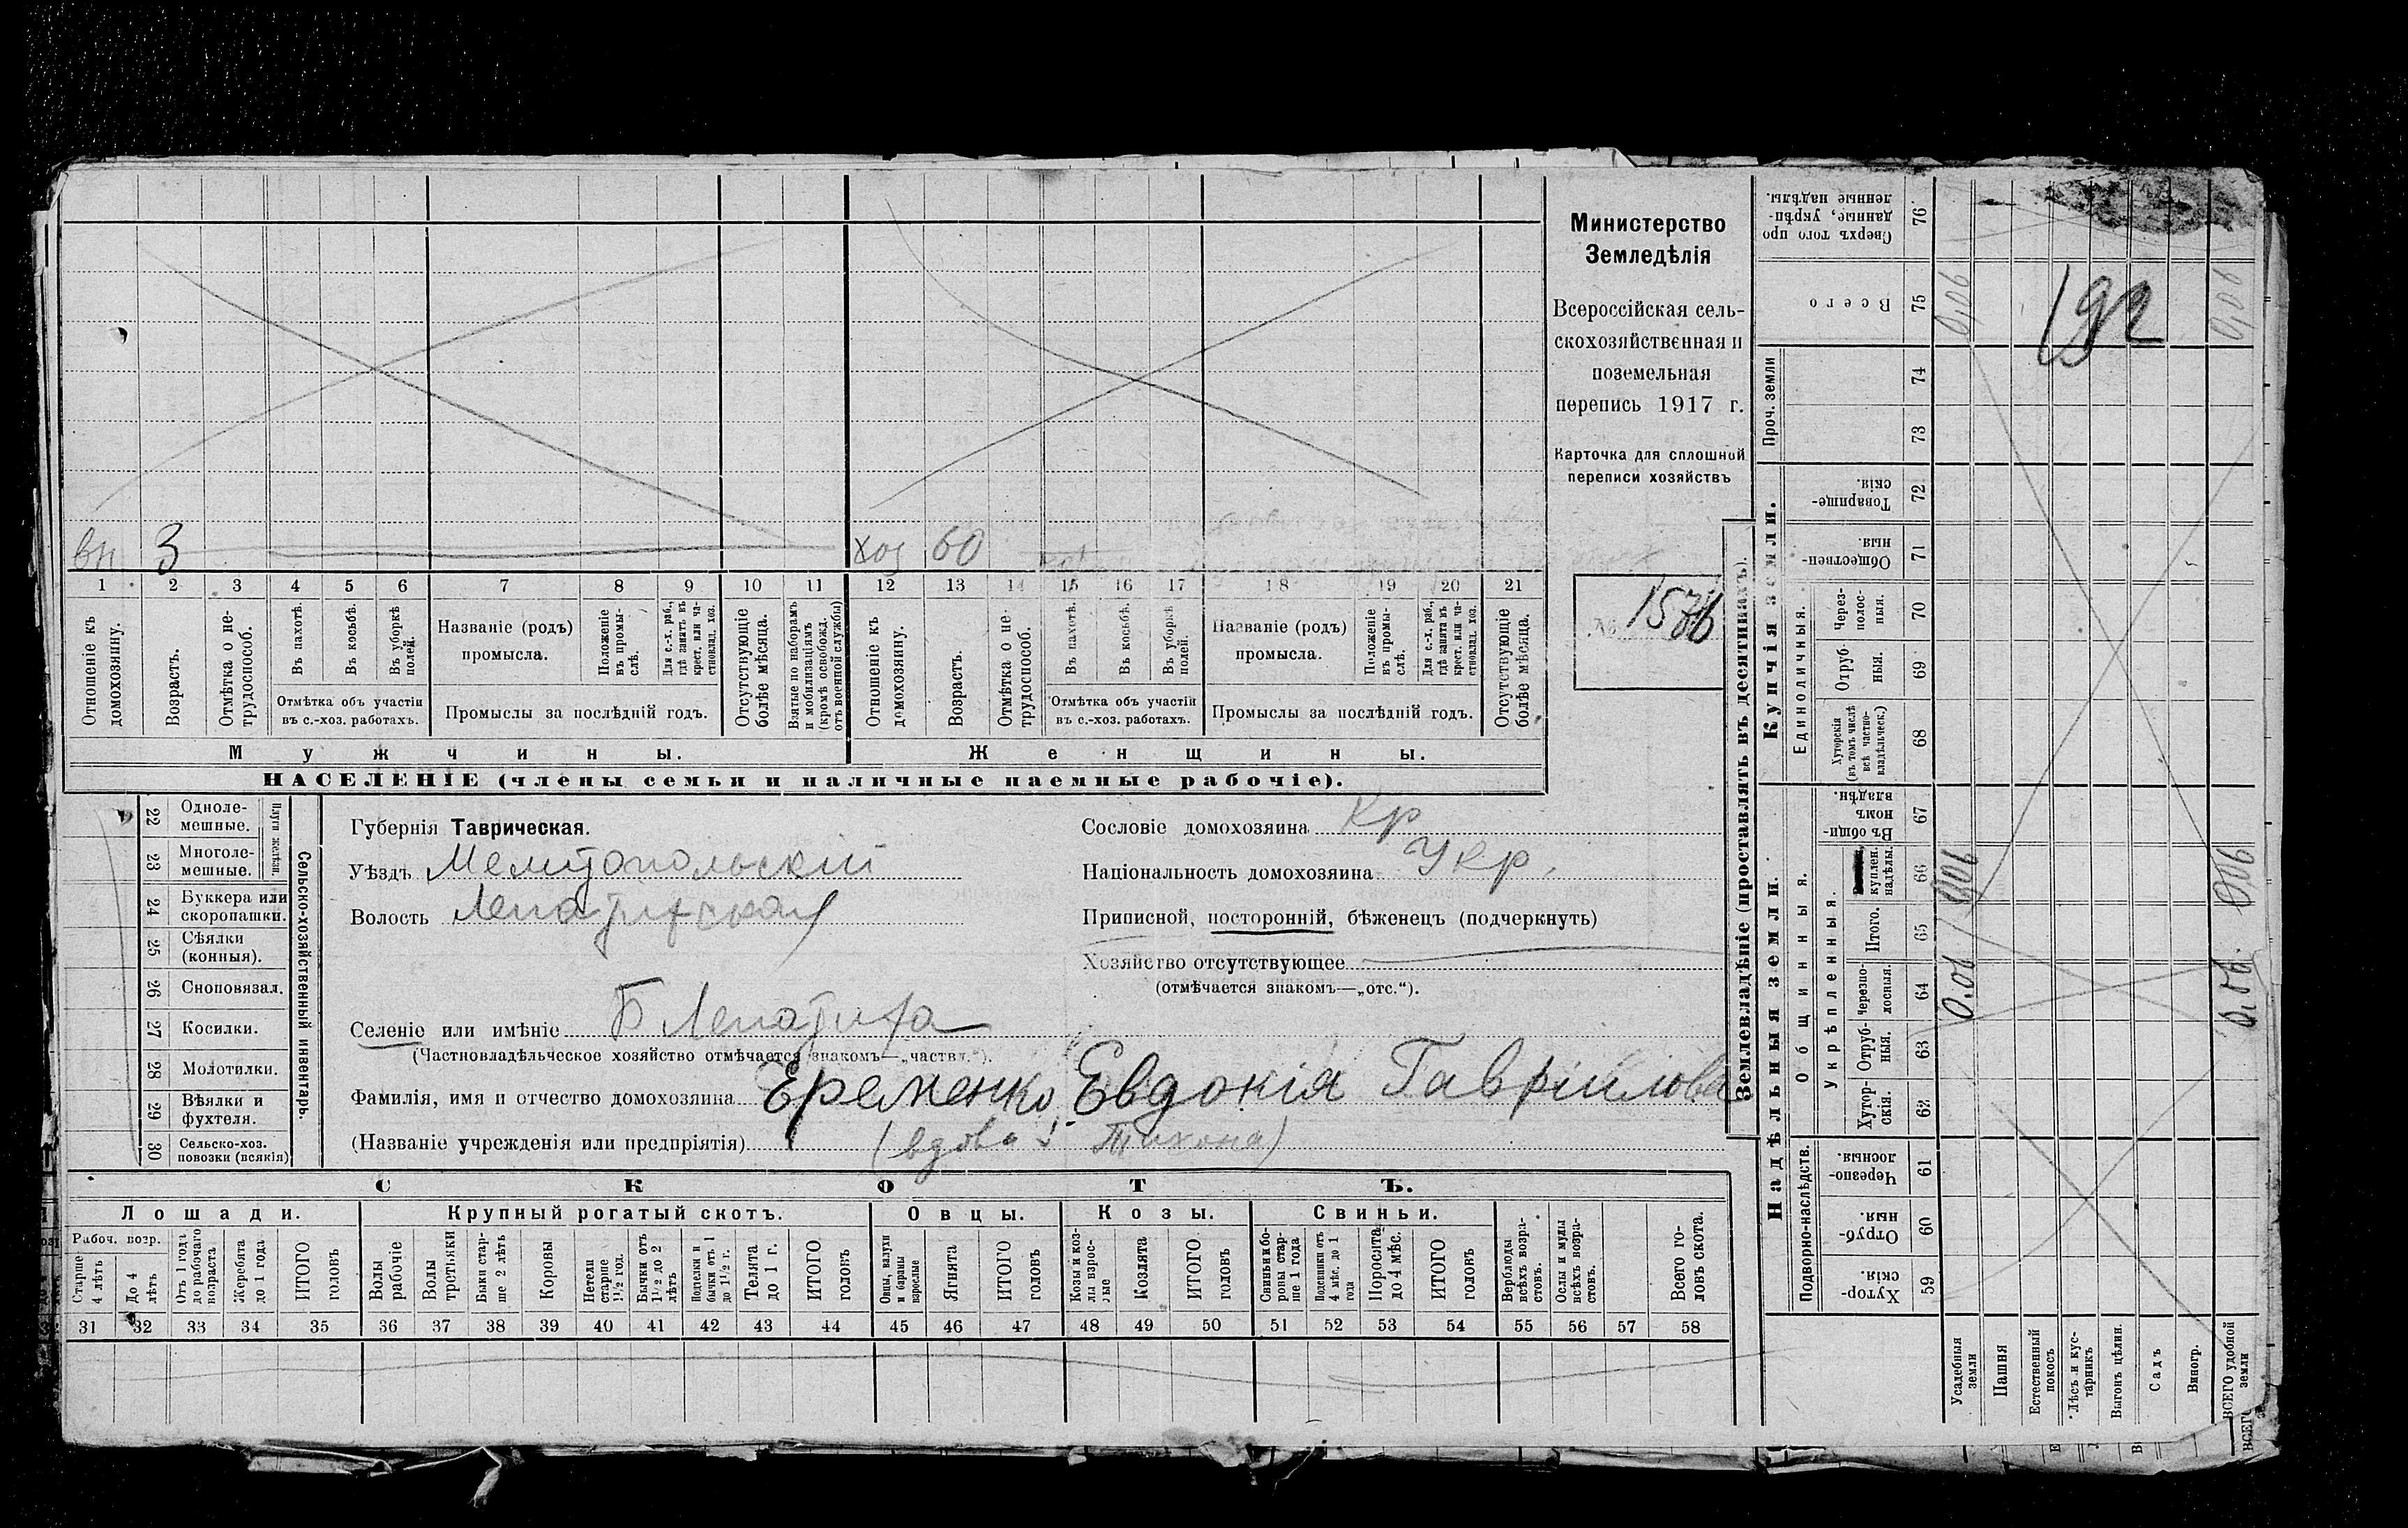 Министерство
Земледѣлія
Всероссійская сель-
скохозяйственная и
поземельная
перепись 1917 г.
Карточка для сплошной
переписи хозяйствъ
№ 1576
вн 3
хоз 60
1 2 3 4 5 6 7 8 9 10 11 12 13 14 15 16 17 18 19 20 21
Отношеніе къ домохозяину.
Возрастъ.
Отмѣтка о не-трудоспособ.
Въ пахотѣ.
Въ косьбѣ.
Въ уборкѣ полей.
Отмѣтка объ участіи въ с.-хоз. работахъ.
Названіе (родъ) промысла.
Положеніе въ промы-слѣ.
Для с.-х. раб., гдѣ занятъ въ крест. или ча-стновлад. хоз.
Промыслы за послѣдній годъ.
Отсутствующіе болѣе мѣсяца.
Взятые по наборамъ и мобилизаціямъ (кромѣ освобожд. отъ военной службы)
Отношеніе къ домохозяину.
Возрастъ.
Отмѣтка о не-трудоспособ.
Въ пахотѣ.
Въ косьбѣ.
Въ уборкѣ полей.
Отмѣтка объ участіи въ с.-хоз. работахъ.
Названіе (родъ) промысла.
Положеніе въ промы-слѣ.
Для с.-х. раб., гдѣ занята въ крест. или ча-стновлад. хоз.
Промыслы за послѣдній годъ.
Отсутствующіе болѣе мѣсяца.
Мужчины. Женщины.
НАСЕЛЕНІЕ (члены семьи и наличные наемные рабочіе).
Сельско-хозяйственный инвентарь.
Плуги желѣзн.
22 Однолемешные.
23 Многолемешные.
24 Буккера или скоропашки.
25 Сѣялки (конныя).
26 Сноповязал.
27 Косилки.
28 Молотилки.
29 Вѣялки и фухтеля.
30 Сельско-хоз. повозки (всякія)
Губернія Таврическая.
Уѣздъ Мелитопольскій
Волость Лепатихская
Селеніе или имѣніе Б Лепатиха
(Частновладѣльческое хозяйство отмѣчается знакомъ—„частн.“).
Фамилія, имя и отчество домохозяина Еременко Евдокія Гавріилова
(Названіе учрежденія или предпріятія) (вдова Тихона)
Сословіе домохозяина Кр
Національность домохозяина Укр.
Приписной, посторонній, бѣженецъ (подчеркнуть)
Хозяйство отсутствующее
(отмѣчается знакомъ—„отс.“).
СКОТЪ.
Лошади. Крупный рогатый скотъ. Овцы. Козы. Свиньи.
Рабоч. возр.
Старше 4 лѣтъ
До 4 лѣтъ
Отъ 1 года до рабочаго возраста
Жеребята до 1 года
ИТОГО головъ
Волы рабочіе
Волы третьяки
Быки стар-ше 2 лѣтъ
Коровы
Нетели старше 1½ год.
Бычки отъ 1½ до 2 лѣтъ
Подтелки и бычки отъ 1 до 1½ г.
Телята до 1 г.
ИТОГО головъ
Овцы, валухи и бараны взрослые
Ягнята
ИТОГО головъ
Козы и коз-лы взрос-лые
Козлята
ИТОГО головъ
Свиньи и бо-ровы стар-ше 1 года
Подсвинки отъ 4 мѣс. до 1 года
Поросята до 4 мѣс.
ИТОГО головъ
Верблюды всѣхъ возра-стовъ.
Ослы и мулы всѣхъ возра-стовъ.
Всего го-ловъ скота.
31 32 33 34 35 36 37 38 39 40 41 42 43 44 45 46 47 48 49 50 51 52 53 54 55 56 57 58
Землевладѣніе (проставлять въ десятинахъ).
Надѣльныя земли. Купчія земли. Проч. земли
Подворно-наслѣдств.
Общинныя.
Укрѣпленныя.
Единоличныя.
Хутор-скія. 59
Отруб-ныя. 60
Черезпо-лосныя. 61
Хутор-скія. 62
Отруб-ныя. 63
Черезпо-лосныя. 64
Итого. 65
куплен. надѣлы. 66
Въ общи-номъ владѣн. 67
Хуторскія (въ томъ числѣ всѣ частно-владѣльческ.) 68
Отруб-ныя. 69
Через-полос-ныя. 70
Обществен-ныя. 71
Товарище-скія. 72
73
74
Всего 75
Сверхъ того про данные, укрѣп-ленные надѣлы. 76
Усадебныя земли
Пашня
Естественный покосъ
Лѣсъ и кус-тарникъ
Выгонъ цѣлин.
Садъ
Виногр.
ВСЕГО удобной земли
0,06 0,06 0,06
192
0,06 0,06 0,06